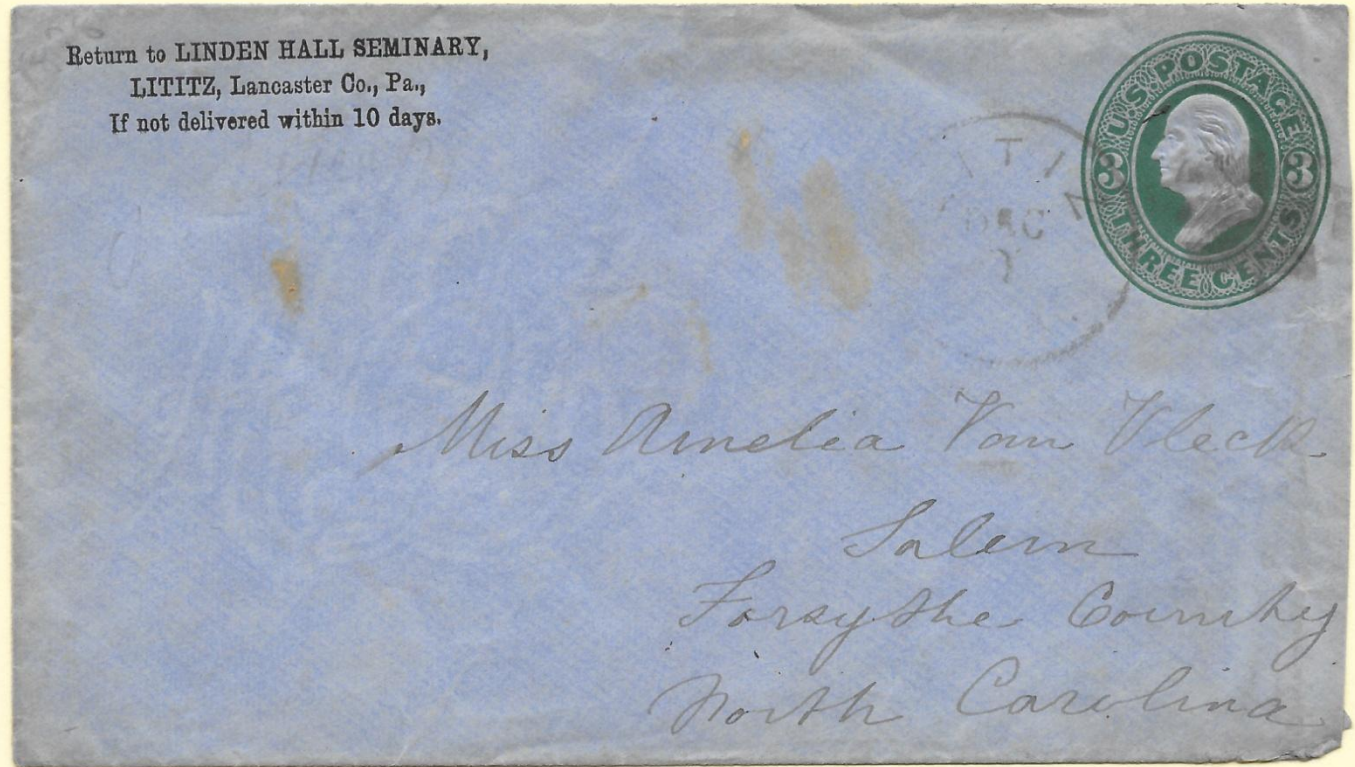 Return to LINDEN HALL SEMINARY,
LITITZ, Lancaster Co., Pa.,
If not delivered within 10 days.
U.S. POSTAGE
3 3
THREE CENTS
ITIZ
DEC
Miss Amelia Van Vleck
Salem
Forsythe County
North Carolina